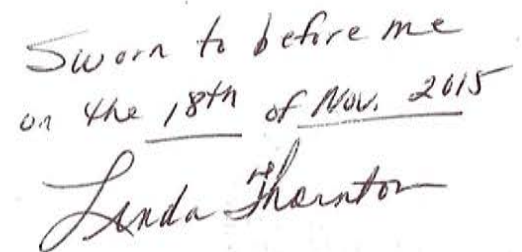 Sworn to before me
on the 18th of Nov. 2015
Linda Thornton